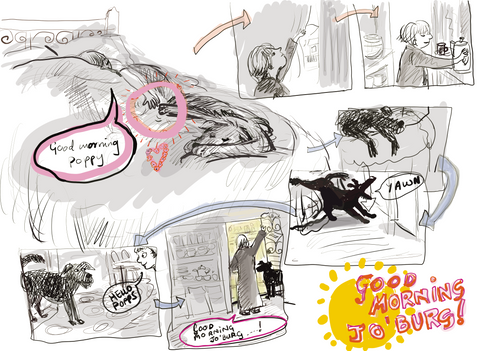 Good morning
poppy
YAWN
HELLO
POPPS
GOOD
MORNING
JO'BURG....!
GOOD
MORNING
JO'BURG!